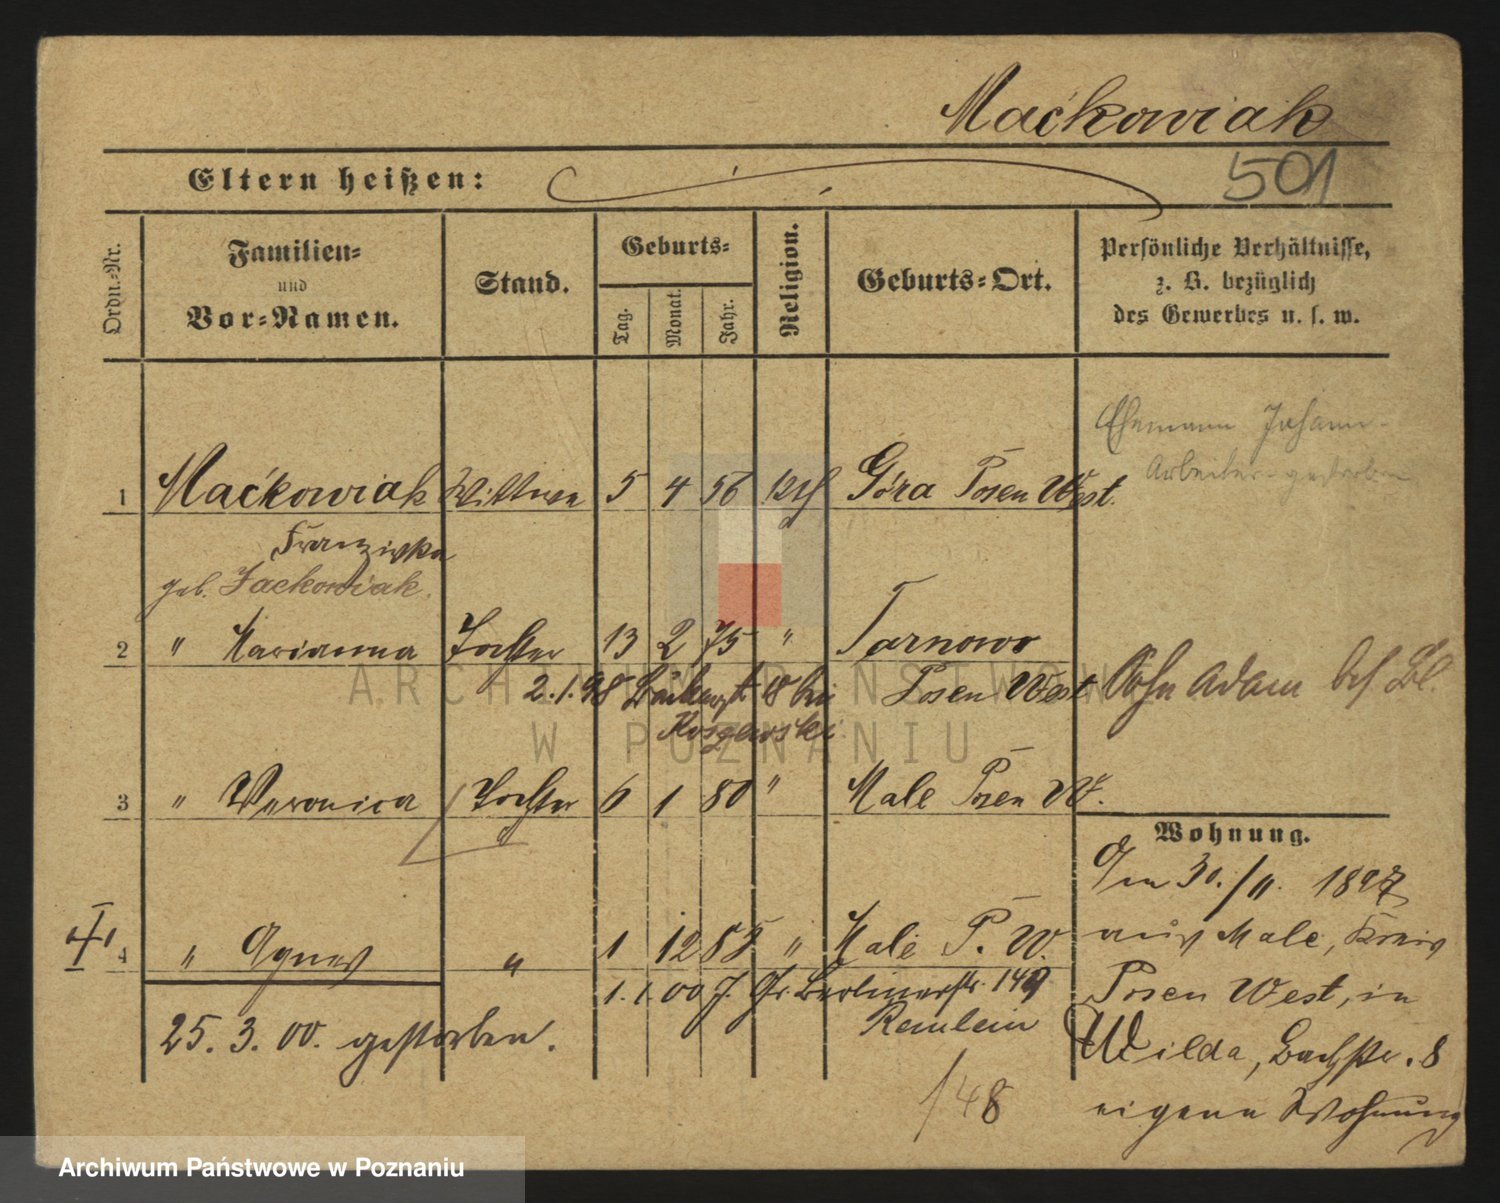 Maćkowiak
501
Eltern heißen:
Ordn.-Nr.
Familien-
und
Vor-Namen.
Stand.
Geburts-
Tag.
Monat.
Jahr.
Religion.
Geburts-Ort.
Persönliche Verhältnisse,
z. B. bezüglich
des Gewerbes u. s. w.
Ehemann Johann
Arbeiter gestorben
1 Maćkowiak Wittwe 5 4 56 kth Góra Posen West.
Franziska
geb. Jackowiak.
2 " Marianna Tochter 13 2 75 " Tarnowo
2.1.98 18 bei Posen West Sohn Adam bes. Bl.
3 " Veronica Tochter 6 1 80 " Male Posen W.
Wohnung.
Am 30./11. 1897
4 " Agnes " 1 12 85 " Male P. W.
aus Male, Kreis
1.1.00 J. Gr. Berlinerstr. 149
Posen West, in
Remlein
25. 3. 00. gestorben.
Wilda, Bachstr. 8
/48
eigene Wohnung
ARCHIWUM PAŃSTWOWE
W POZNANIU
Archiwum Państwowe w Poznaniu